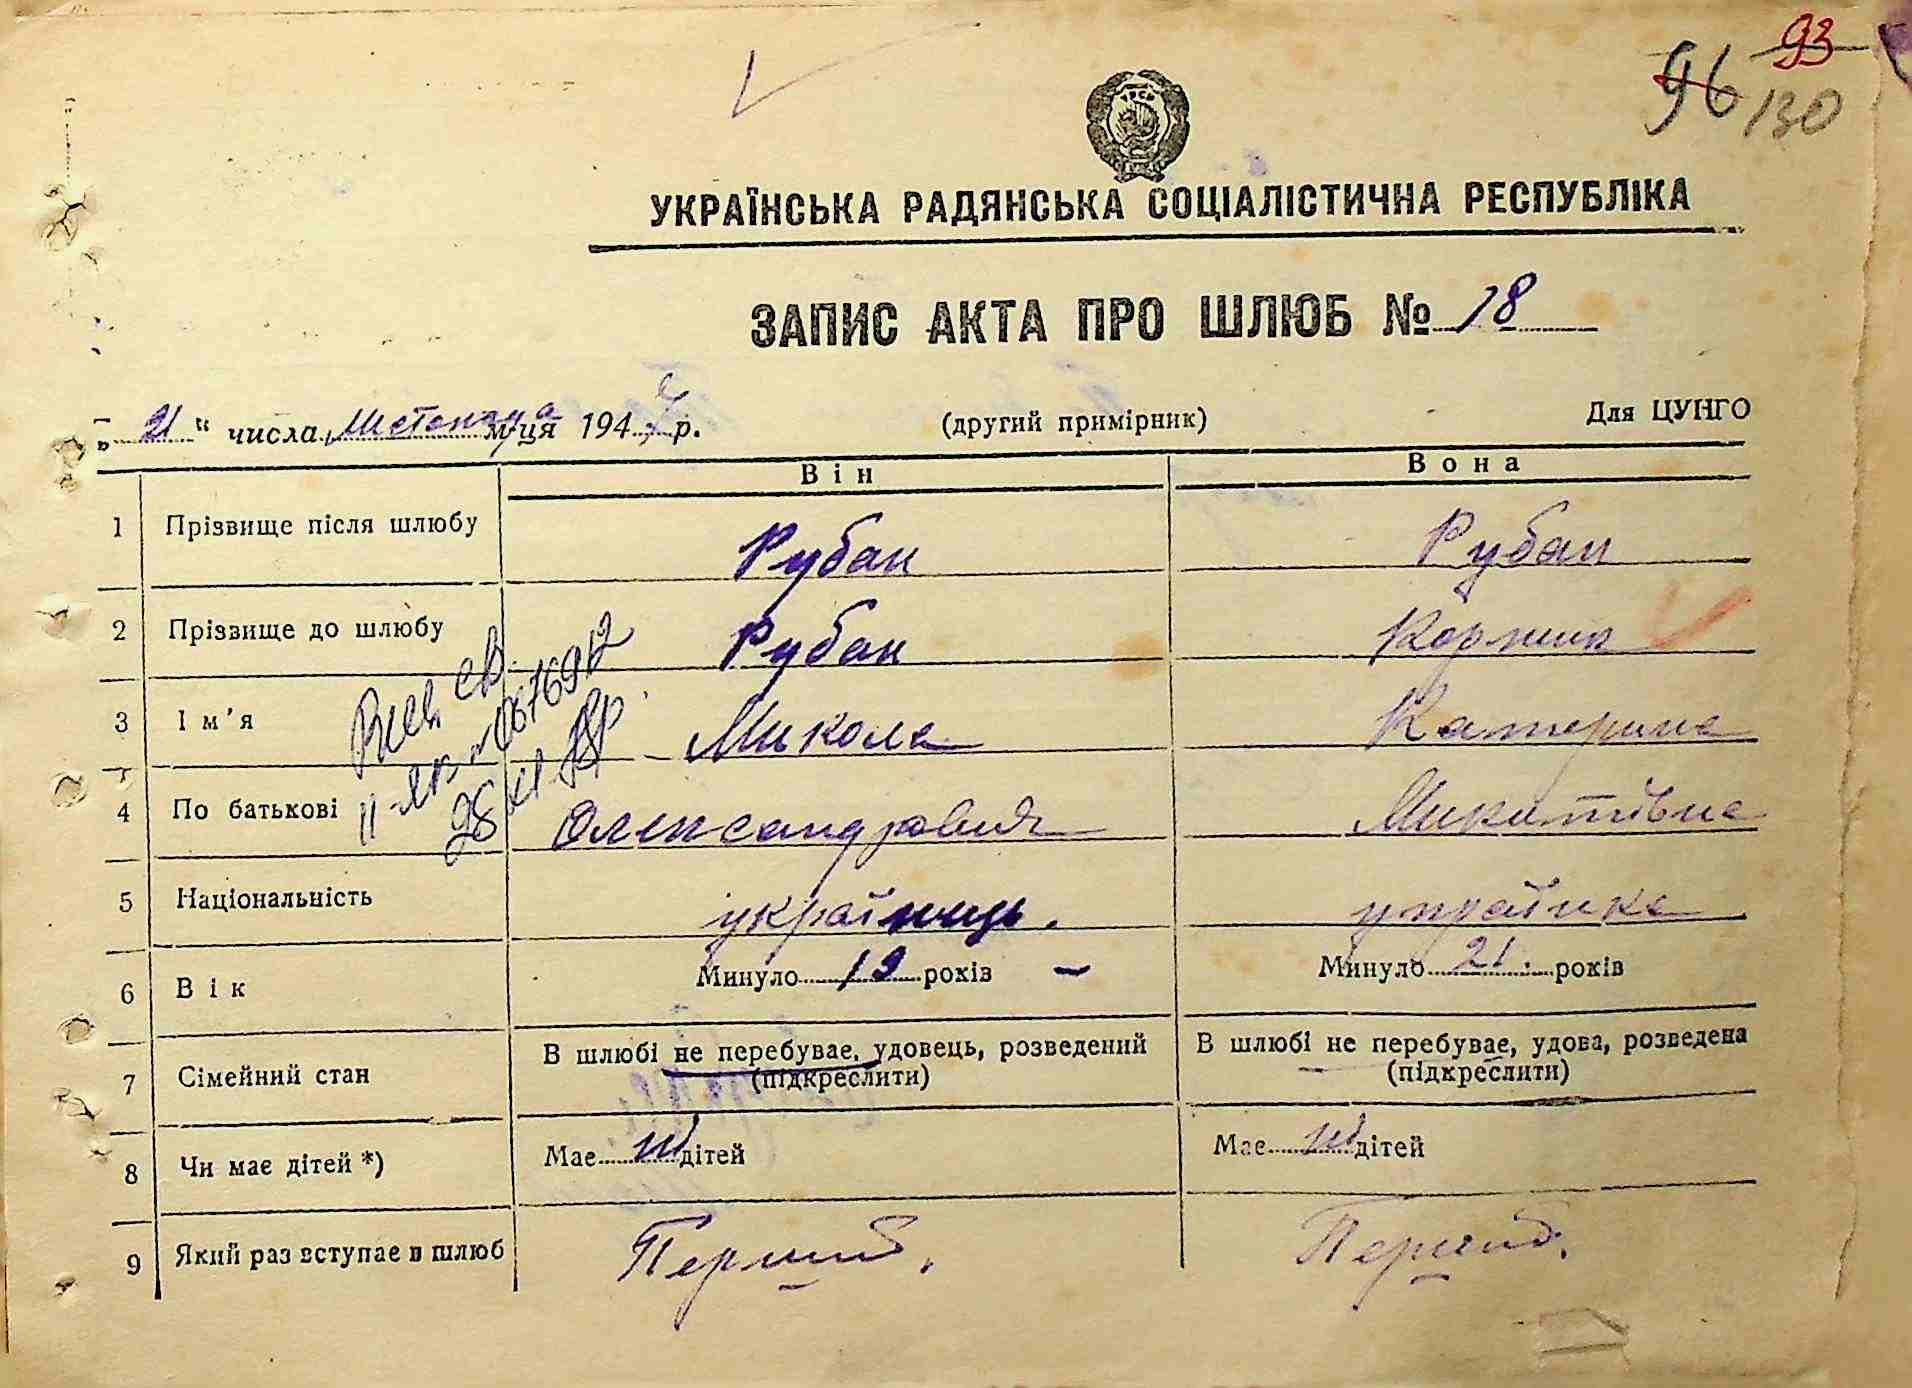 93
96 130
УКРАЇНСЬКА РАДЯНСЬКА СОЦІАЛІСТИЧНА РЕСПУБЛІКА
ЗАПИС АКТА ПРО ШЛЮБ № 18
„ 21 “ числа листопада м-ця 1947 р. (другий примірник) Для ЦУНГО
Він Вона
1 Прізвище після шлюбу Рубан Рубан
2 Прізвище до шлюбу Рубан
3 Ім'я Микола Катерина
4 По батькові Олександрович Микитівна
5 Національність українець. українка
6 Вік Минуло 19 років — Минуло 21. років
7 Сімейний стан В шлюбі не перебуває, удовець, розведений В шлюбі не перебуває, удова, розведена
(підкреслити) (підкреслити)
8 Чи має дітей *) Має дітей Має дітей
9 Який раз вступає в шлюб Перший. Перший.